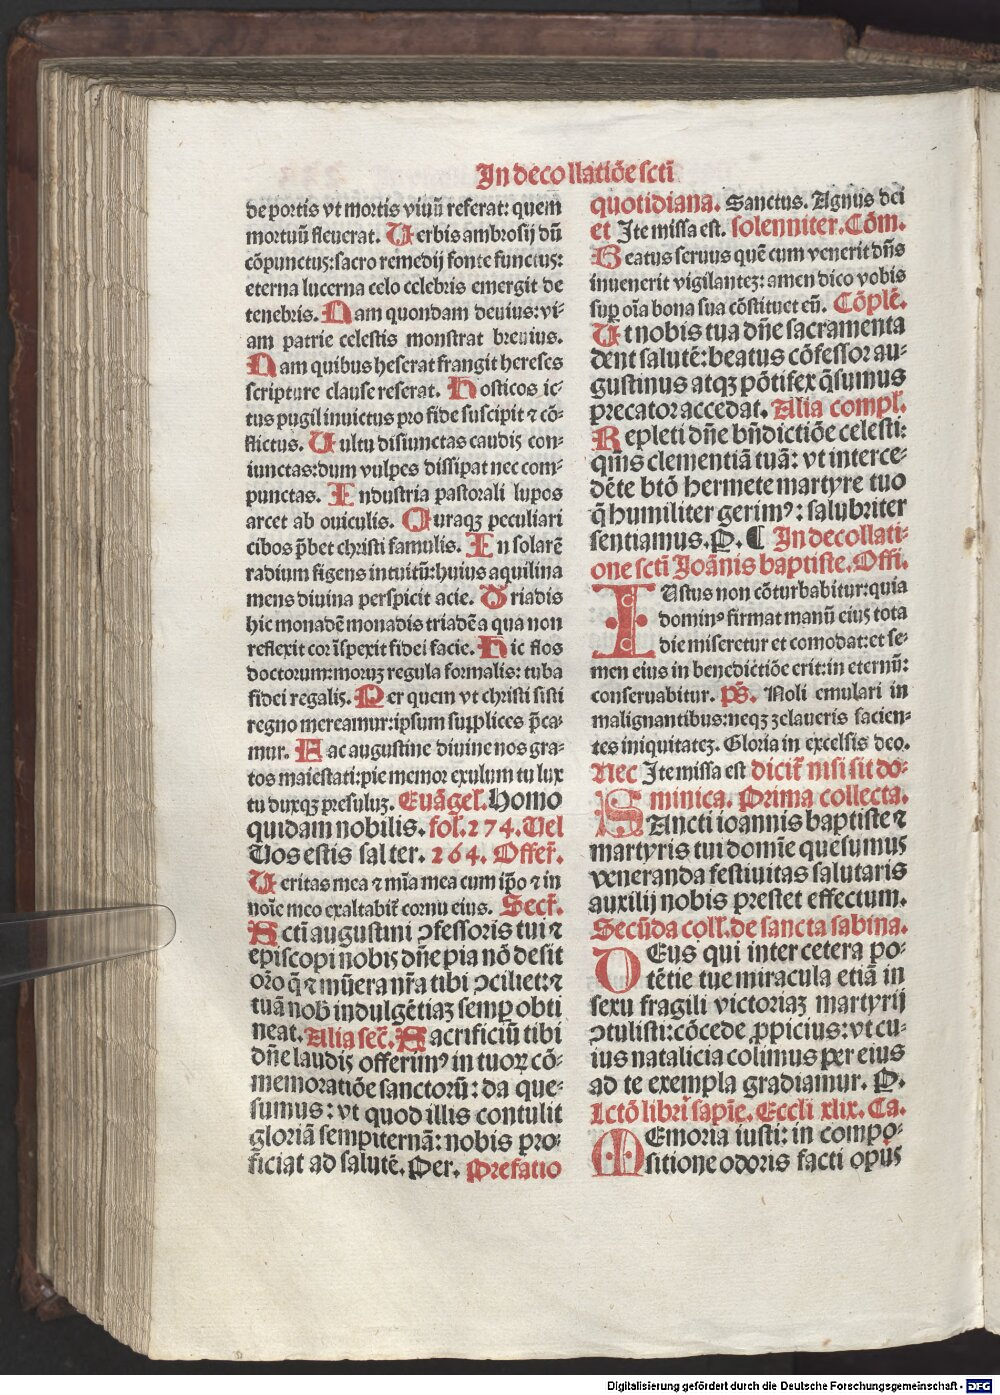 In decollatiōe scti
de portis vt mortis viuū referat: quem
mortuū fleuerat. Verbis ambrosij dū
cōpunctus: sacro remedij fonte functus:
eterna lucerna celo celebris emergit de
tenebris. Nam quondam deuius: vi-
am patrie celestis monstrat breuius.
Nam quibus heserat frangit hereses
scripture clause reserat. Hosticos ic-
tus pugil inuictus pro fide suscipit ⁊ cō-
flictus. Vultu disiunctas caudis con-
iunctas: dum vulpes dissipat nec com-
punctas. Industria pastorali lupos
arcet ab ouiculis. Curaqꝫ peculiari
cibos p̄bet christi famulis. In solarē
radium figens intuitū: huius aquilina
mens diuina perspicit acie. Triadis
hic monadē monadis triadē a qua non
reflexit cor īspexit fidei facie. Hic flos
doctorum: moruꝫ regula formalis: tuba
fidei regalis. Per quem vt christi sisti
regno mereamur: ipsum supplices p̄ca-
mur. Hac augustine diuine nos gra-
tos maiestati: pie memor exulum tu lux
tu duxqꝫ presuluꝫ. Euāgel'. Homo
quidam nobilis. fol. 274. Vel
Vos estis sal ter. 264. Offer̄.
Veritas mea ⁊ mīa mea cum ip̄o ⁊ in
noīe meo exaltabit̄ cornu eius. Secr̄.
Scti augustini ꝯfessoris tui ⁊
episcopi nobis dn̄e pia nō desit
or̄o q̄ ⁊ mūera nr̄a tibi ꝯciliet: ⁊
tuā nob̄ indulgētiaꝫ semꝑ obti
neat. Alia sec̄. Sacrificiū tibi
dn̄e laudis offerimꝰ in tuoꝝ cō-
memoratiōe sanctorū: da que-
sumus: vt quod illis contulit
gloriā sempiternā: nobis pro-
ficiat ad salutē. Per. Prefatio
quotidiana. Sanctus. Agnus dei
et Ite missa est. solenniter. Cōm.
Beatus seruus quē cum venerit dn̄s
inuenerit vigilanteꝫ: amen dico vobis
suꝑ oīa bona sua cōstituet eū. Cōplē.
Vt nobis tua dn̄e sacramenta
dent salutē: beatus cōfessor au-
gustinus atqꝫ pōtifex q̄sumus
precator accedat. Alia compl'.
Repleti dn̄e bn̄dictiōe celesti:
qm̄s clementiā tuā: vt interce-
dēte btō hermete martyre tuo
q̄ humiliter gerimꝰ: salubriter
sentiamus. P. ¶ In decollati-
one scti Joānis baptiste. Offi.
IUstus non cōturbabitur: quia
dominꝰ firmat manū eius tota
die miseretur et comodat: et se-
men eius in benedictiōe erit: in eternū:
conseruabitur. ps̄. Noli emulari in
malignantibus: neqꝫ zelaueris facien-
tes iniquitateꝫ. Gloria in excelsis deo.
Nec Ite missa est dicit̄ nisi sit do-
minica. Prima collecta.
SAncti ioannis baptiste ⁊
martyris tui domīe quesumus
veneranda festiuitas salutaris
auxilij nobis prestet effectum.
Secūda coll'. de sancta sabina.
DEus qui inter cetera po-
tētie tue miracula etiā in
sexu fragili victoriaꝫ martyrij
ꝯtulisti: cōcede ꝓpicius: vt cu-
ius natalicia colimus per eius
ad te exempla gradiamur. P.
Lctō libri sapīe. Eccli xlix. Ca.
MEmoria iusti: in compo-
sitione odoris facti opus
Digitalisierung gefördert durch die Deutsche Forschungsgemeinschaft - DFG